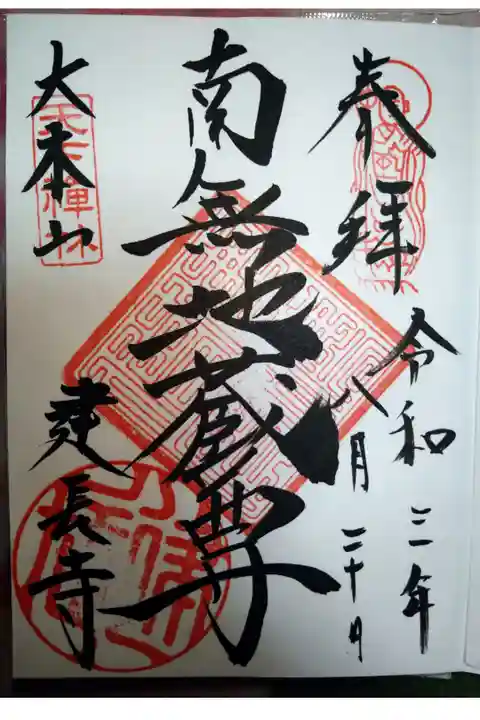 奉拝
令和三年
八月二十日
南無地蔵尊
大本山
建長寺
天下禅林